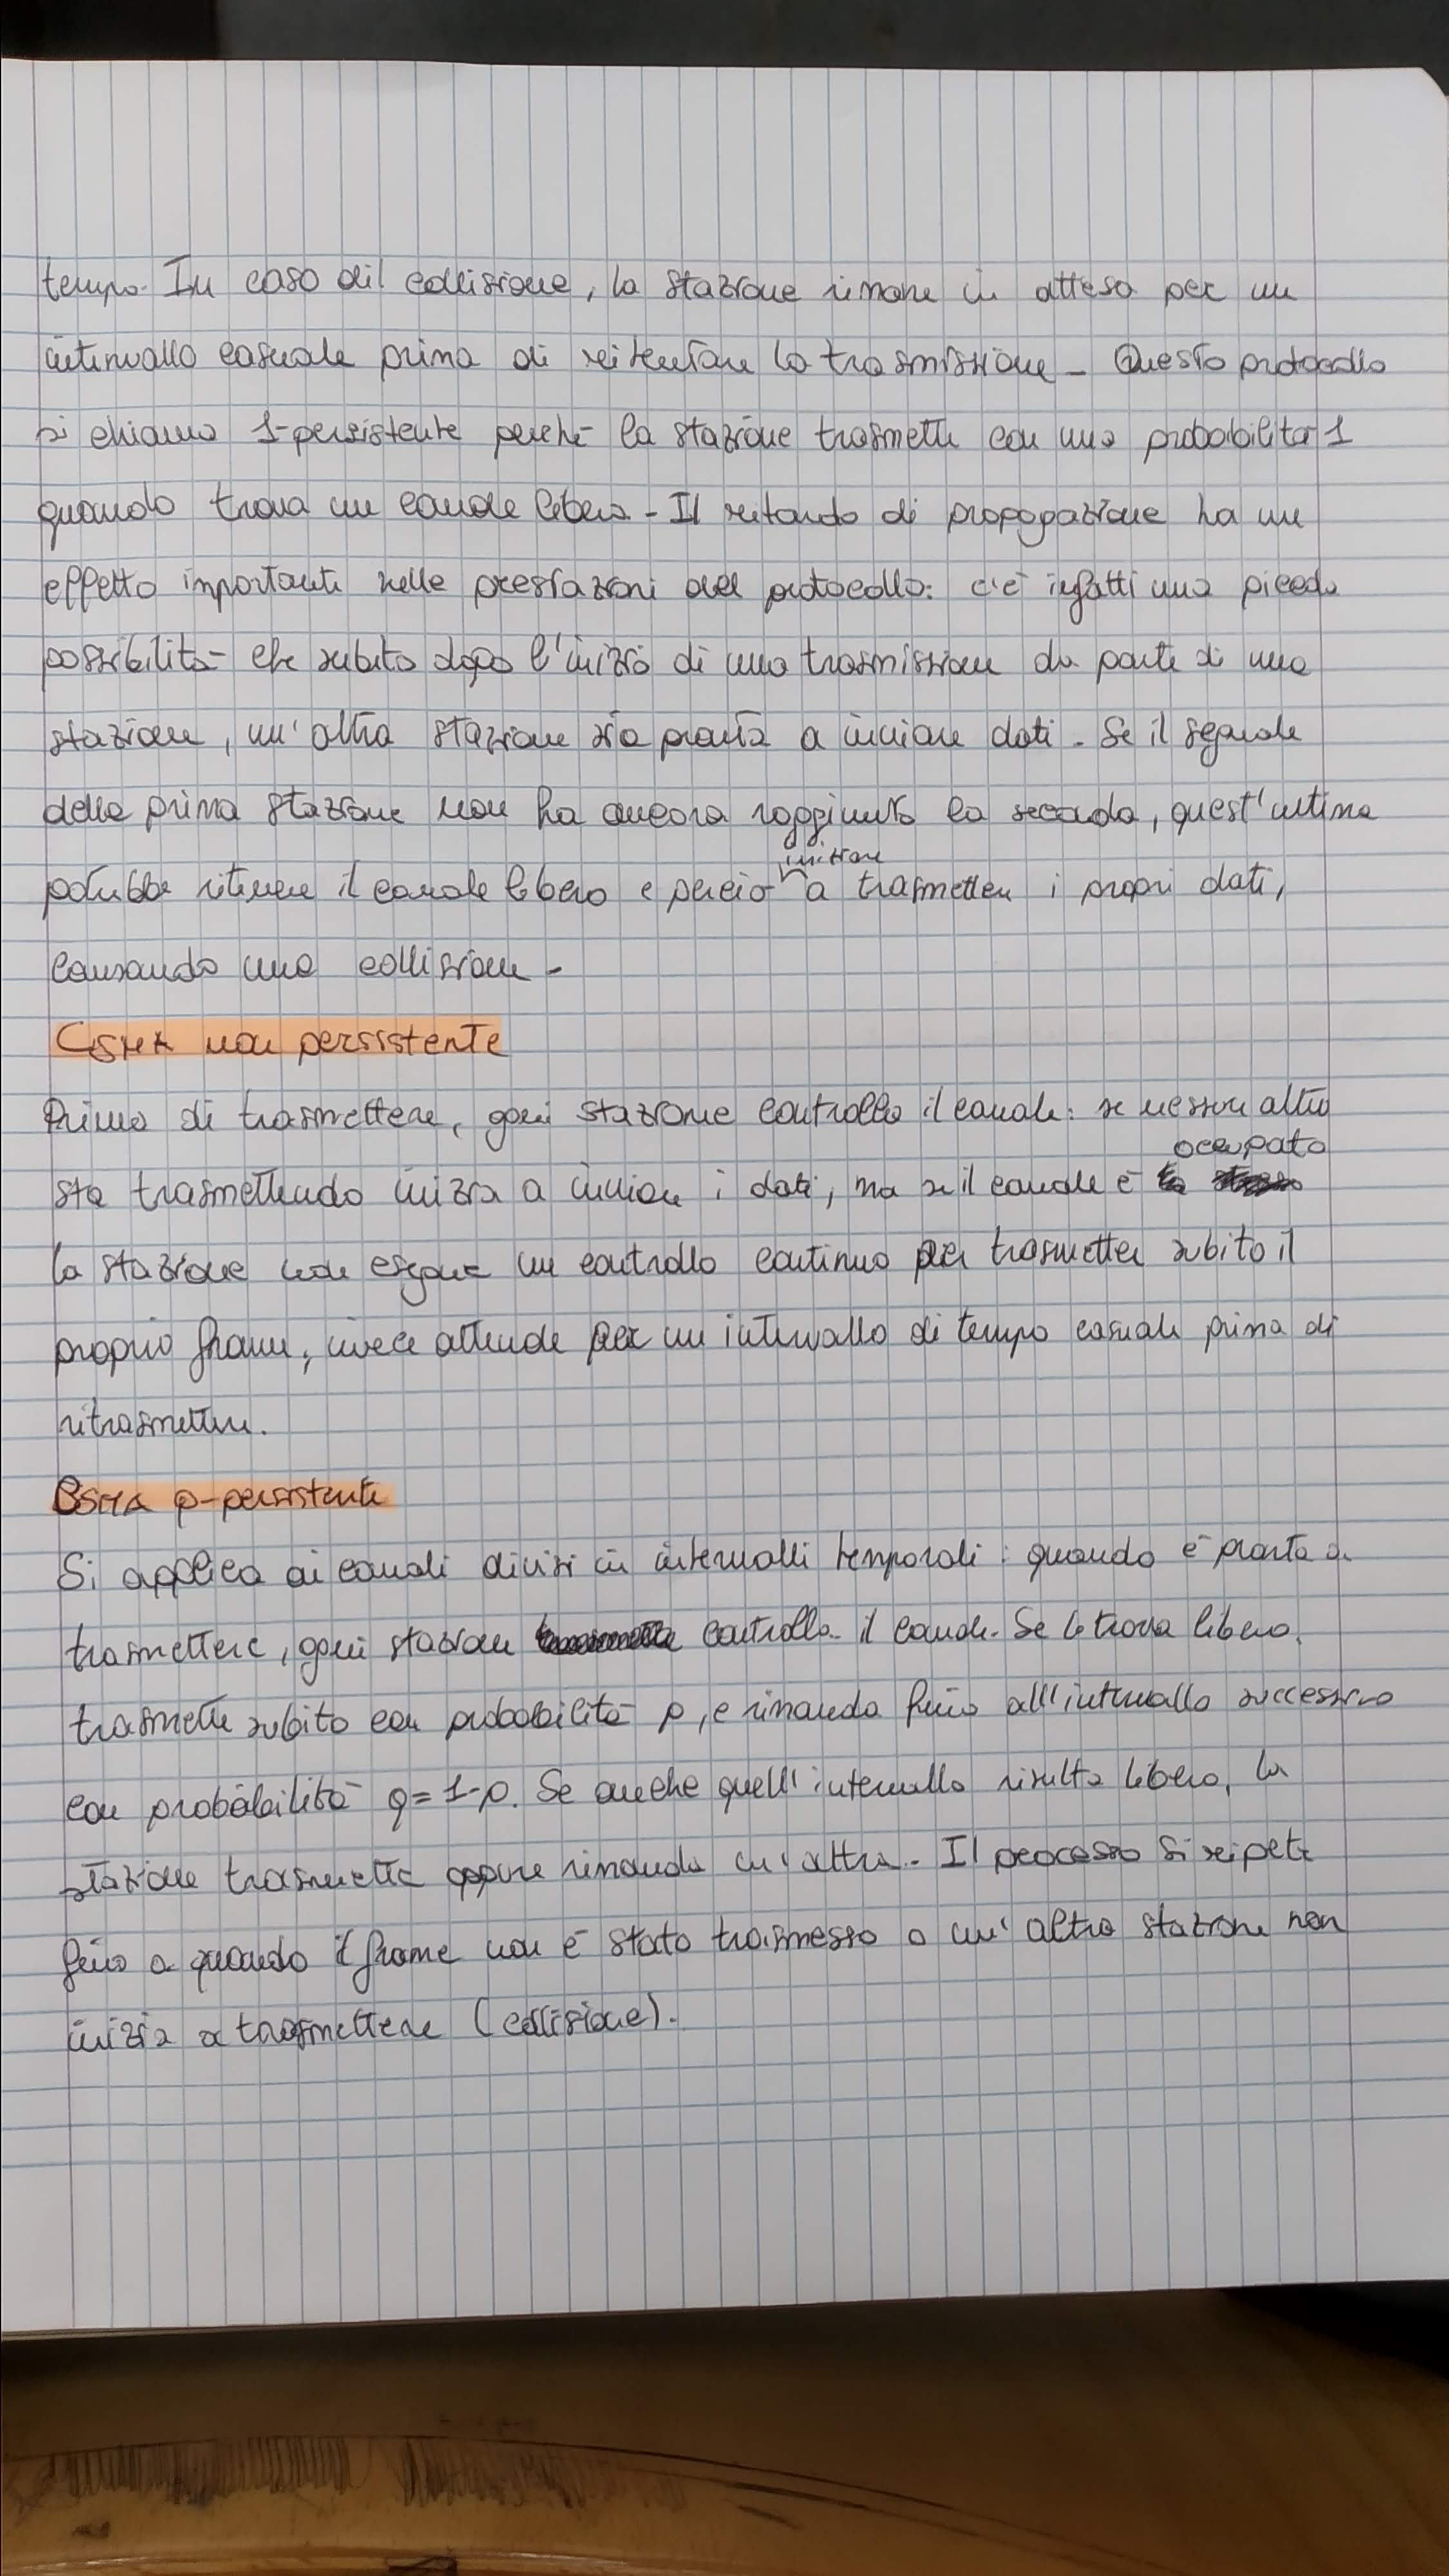 tempo. In caso dil collisione, la stazione rimane in attesa per un
intervallo casuale prima di ritentare la trasmissione - Questo protocollo
si chiama 1-persistente perchè la stazione trasmette con una probabilità 1
quando trova un canale libero - Il ritardo di propagazione ha un
effetto importante nelle prestazioni del protocollo: c'è infatti una piccola
possibilità che subito dopo l'inizio di una trasmissione da parte di una
stazione, un'altra stazione sia pronta a inviare dati. Se il segnale
della prima stazione non ha ancora raggiunto la seconda, quest'ultima
iniziare
potrebbe ritenere il canale libero e perciò a trasmettere i propri dati,
causando una collisione -
CSMA non persistente
Prima di trasmettere, ogni stazione controlla il canale: se nessun altro
occupato
sta trasmettendo inizia a inviare i dati, ma se il canale è
la stazione non esegue un controllo continuo per trasmettere subito il
proprio frame, invece attende per un intervallo di tempo casuale prima di
ritrasmettere.
CSMA p-persistente
Si applica ai canali divisi in intervalli temporali: quando è pronta a
trasmettere, ogni stazione controlla il canale. Se lo trova libero,
trasmette subito con probabilità p, e rimanda fino all'intervallo successivo
con probabilità q=1-p. Se anche quell'intervallo risulta libero, la
stazione trasmette oppure rimanda un'altra. Il processo si ripete
fino a quando il frame non è stato trasmesso o un'altra stazione non
inizia a trasmettere (collisione).